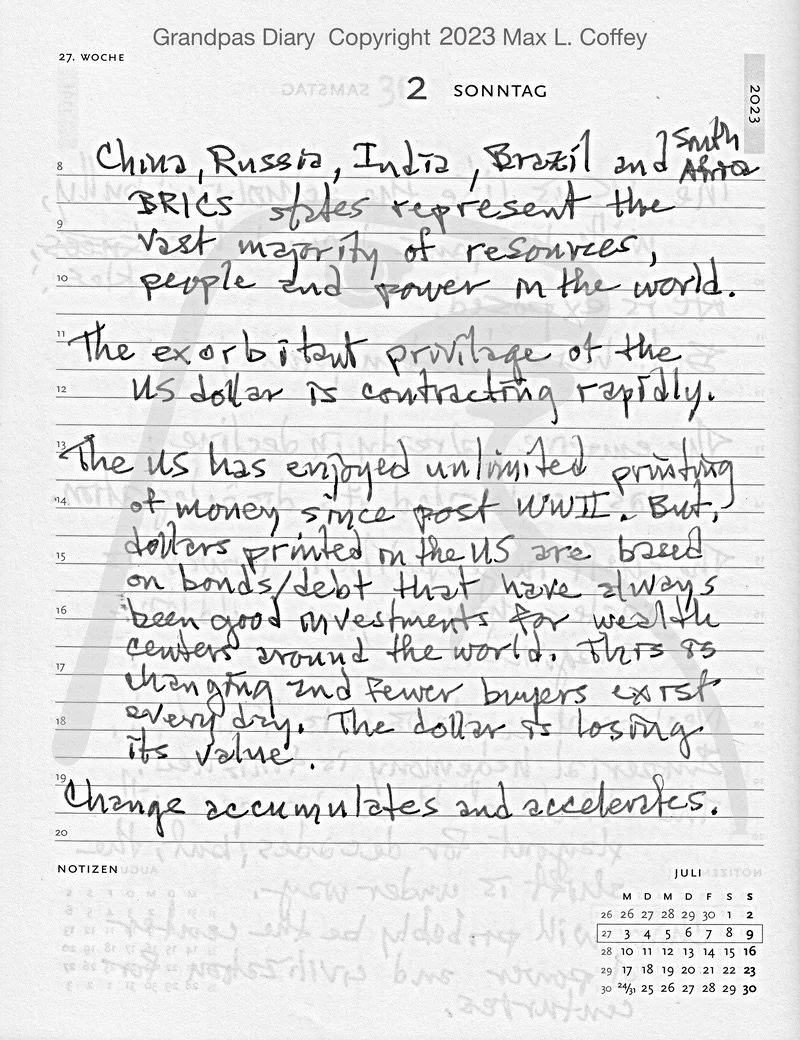 Grandpas Diary Copyright 2023 Max L. Coffey
27. WOCHE
2 SONNTAG
2023
8 China, Russia, India, Brazil and South Africa
BRICS states represent the
9 vast majority of resources,
10 people and power in the world.
11 The exorbitant privilage of the
12 US dollar is contracting rapidly.
13 The US has enjoyed unlimited printing
14 of money since post WWII. But,
15 dollars printed in the US are based
on bonds/debt that have always
16 been good investments for wealth
centers around the world. This is
17 changing and fewer buyers exist
18 every day. The dollar is losing
its value.
19 Change accumulates and accelerates.
20
NOTIZEN
JULI
M D M D F S S
26 26 27 28 29 30 1 2
27 3 4 5 6 7 8 9
28 10 11 12 13 14 15 16
29 17 18 19 20 21 22 23
30 24/31 25 26 27 28 29 30